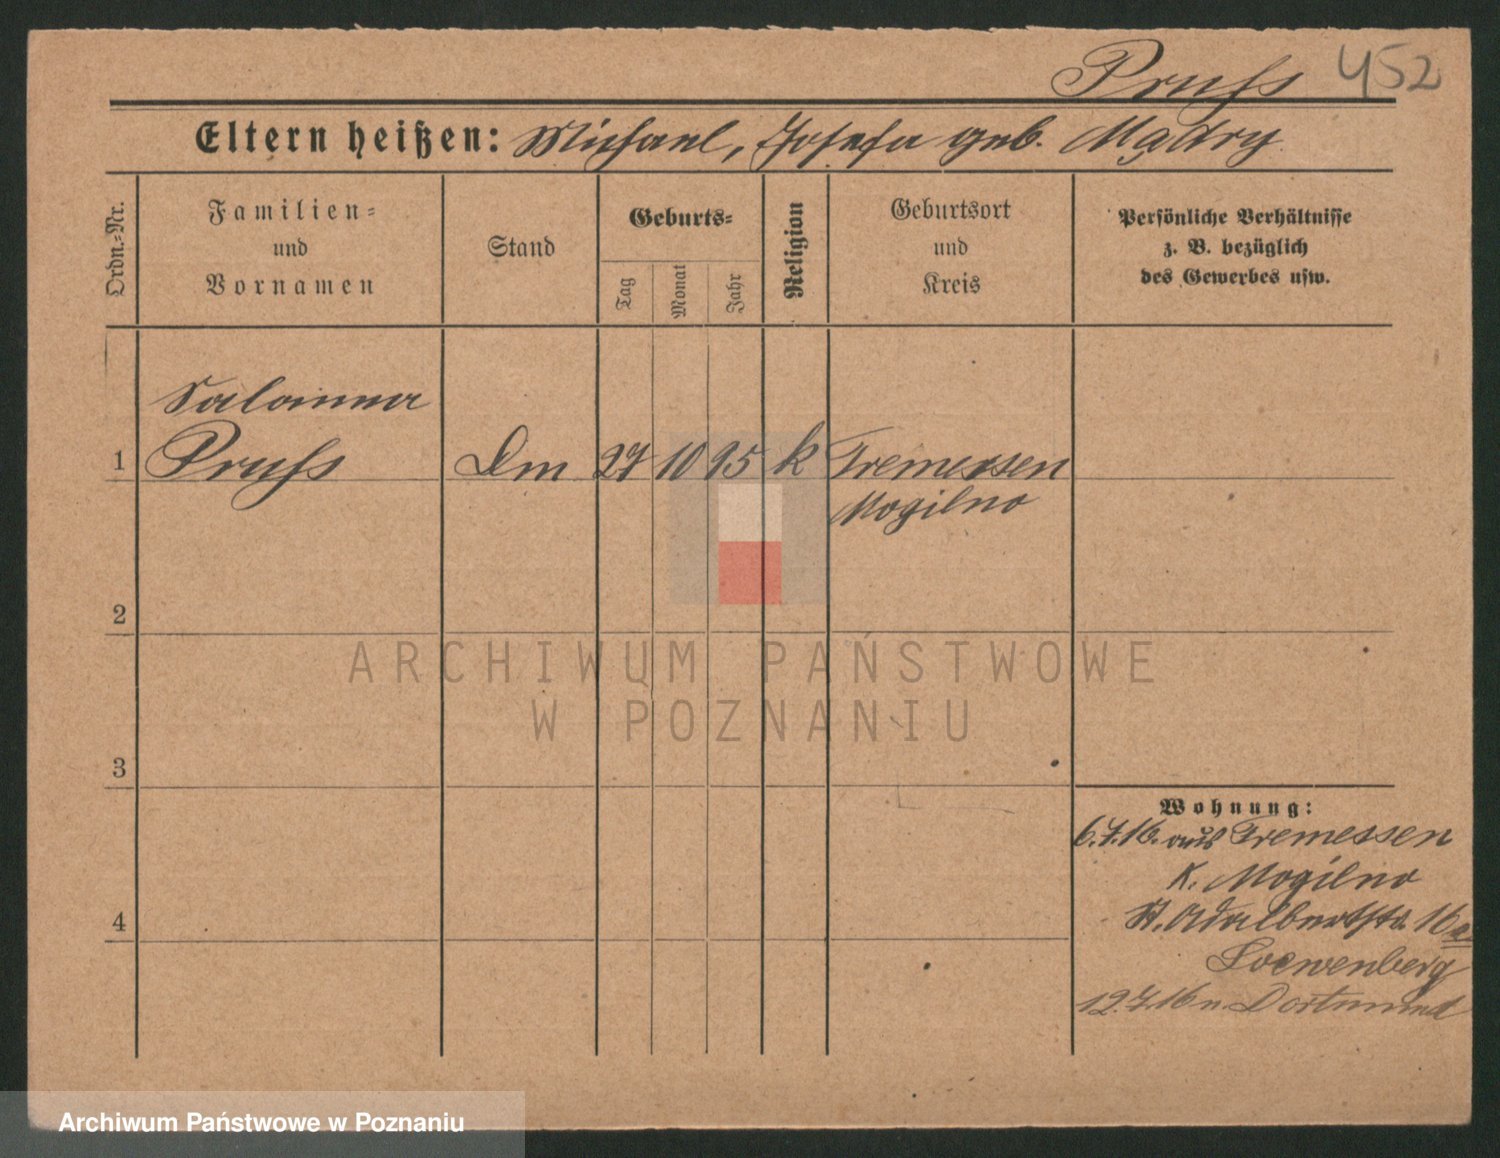 Pruss 452
Eltern heißen: Michael, Josefa geb. Mądry
Ordn.-Nr.
Familien-
und
Vornamen
Stand
Geburts-
Tag
Monat
Jahr
Religion
Geburtsort
und
Kreis
Persönliche Verhältnisse
z. B. bezüglich
des Gewerbes usw.
1
Salomea
Pruss
Dm 27 10 95 k Tremessen
Mogilno
2
3
4
Wohnung:
6.7.16. aus Tremessen
K. Mogilno
St. Adalbertstr. 16a
Loewenberg
12.7.16 n. Dortmund
ARCHIWUM PAŃSTWOWE
W POZNANIU
Archiwum Państwowe w Poznaniu